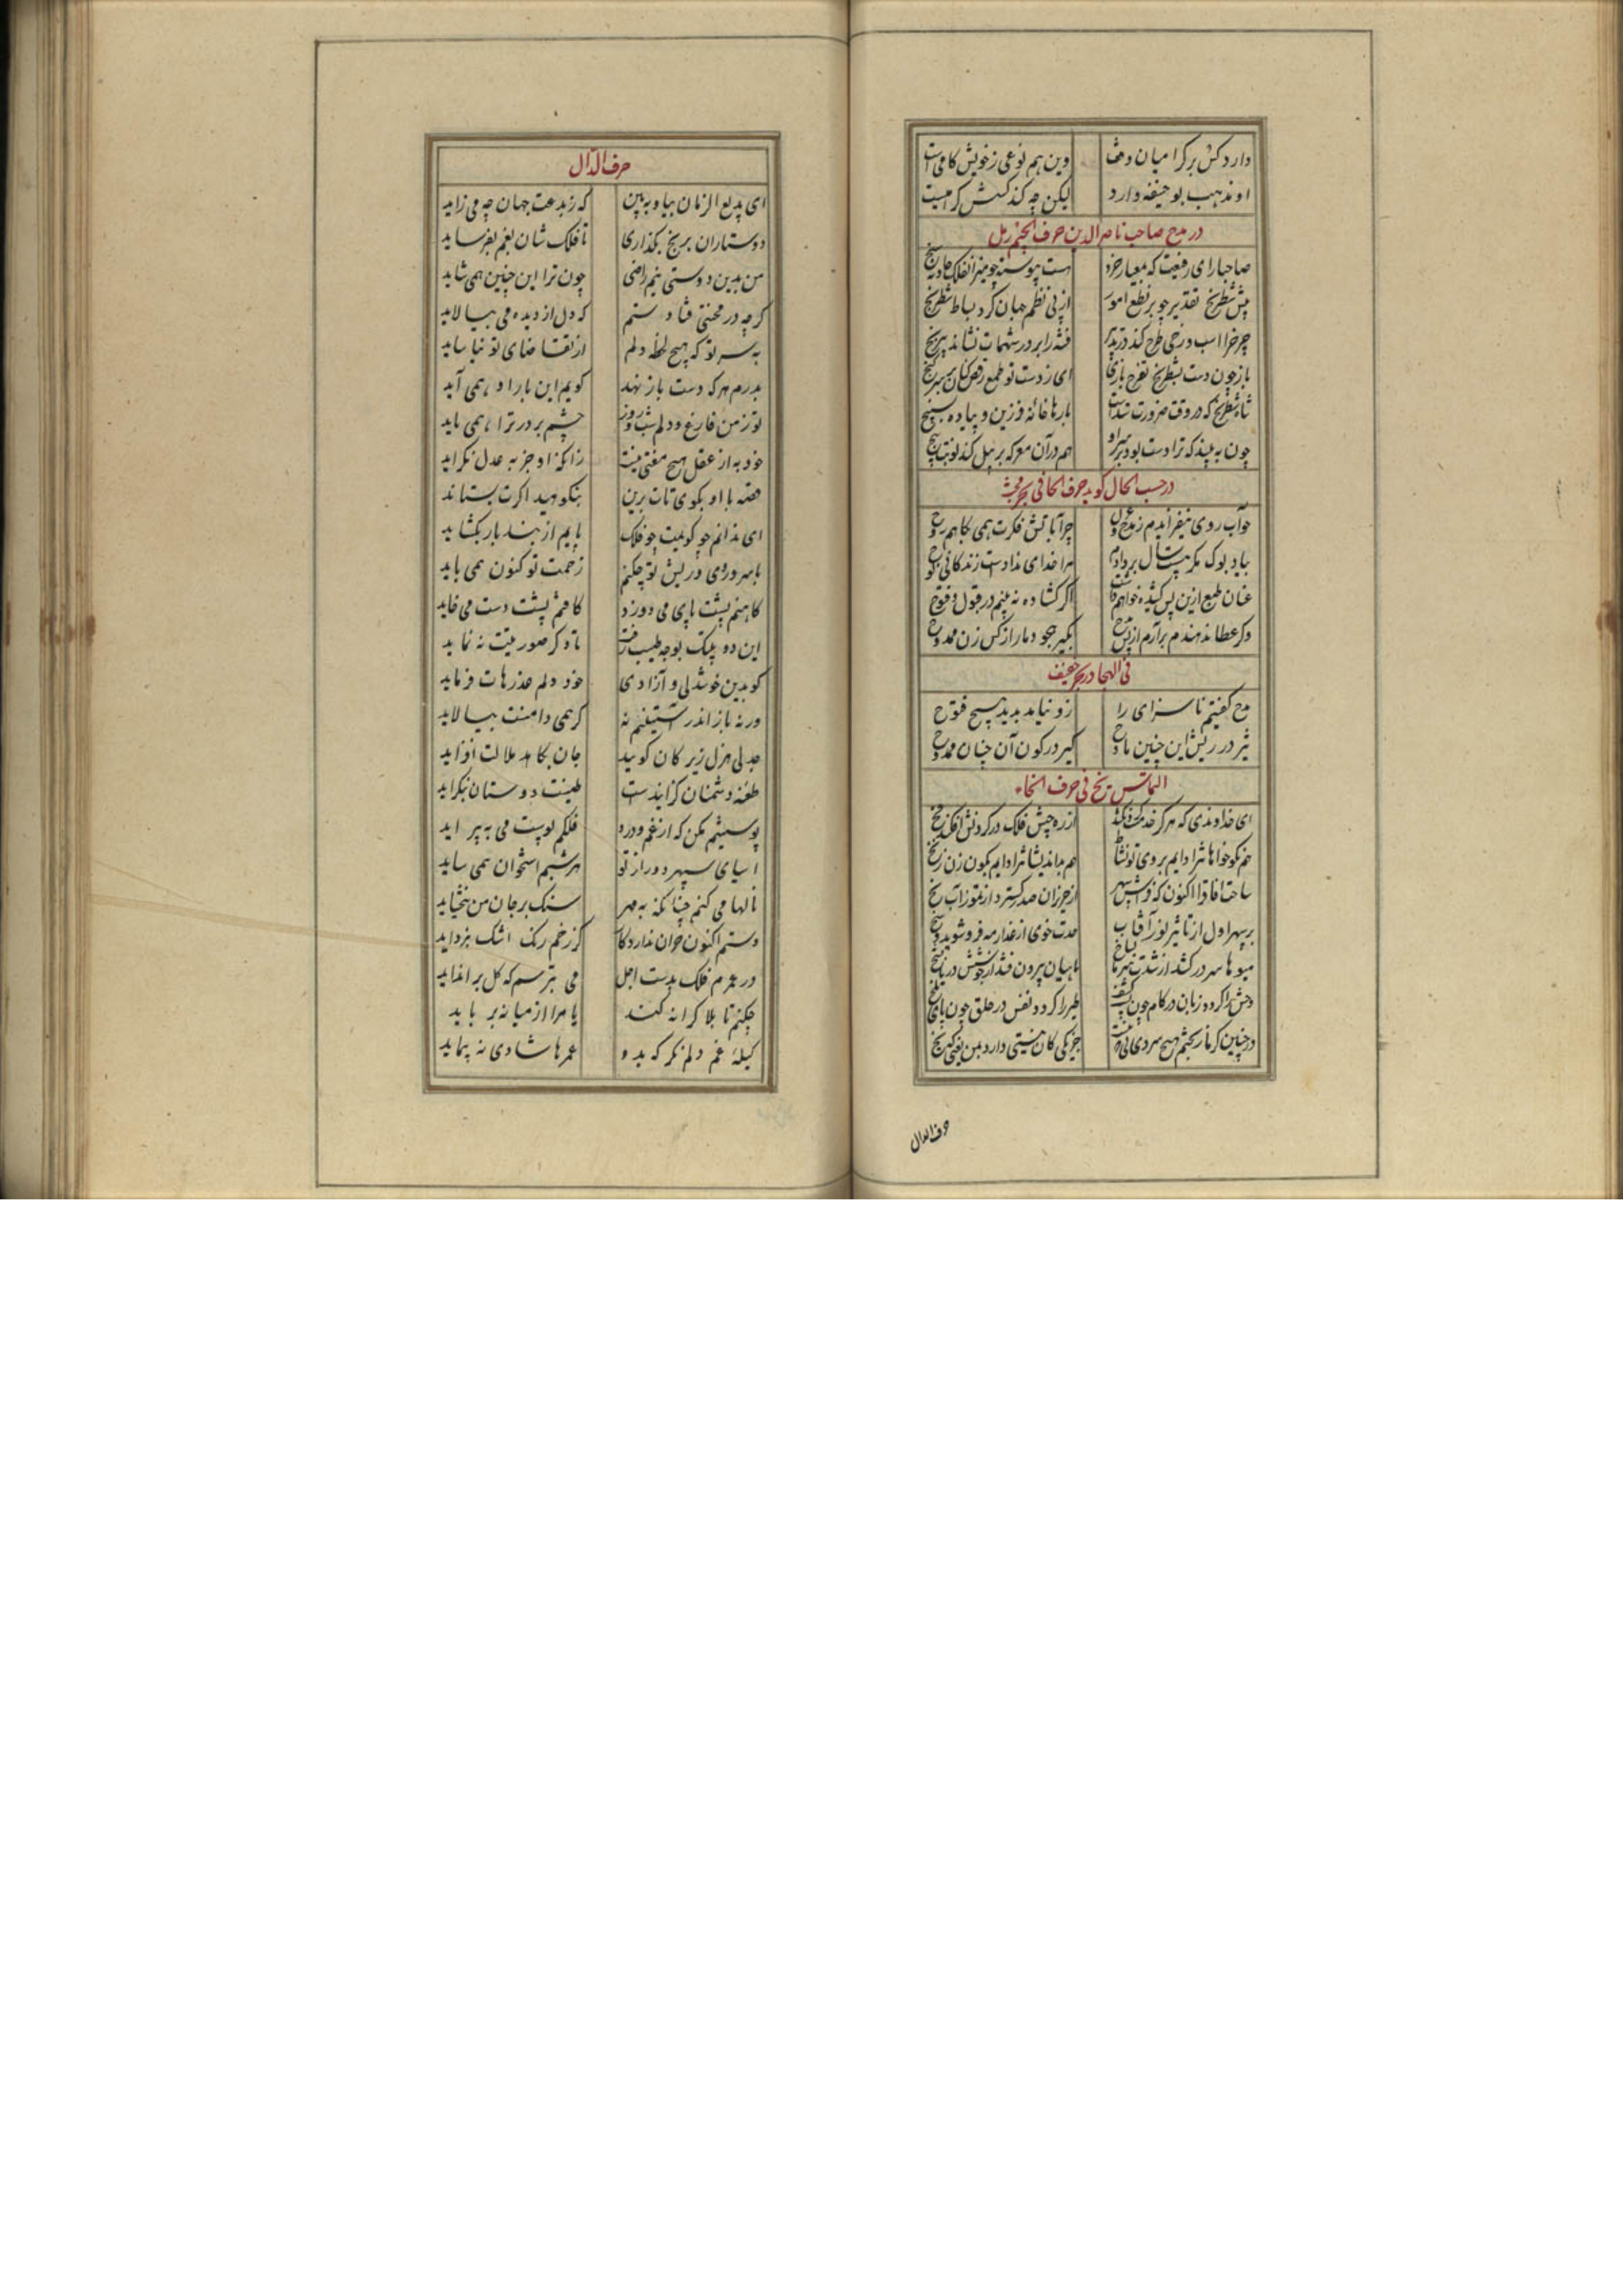 دارد کس بر کرا میان
وین هم نوعی ز خویش کامی است
او مذهب بوحنیفه دارد
لیکن چه کند کسش کرامیت
در مدح صاحب ناصرالدین حرف الجیم رمل
صاحبا رای رفیعت که معیار خرد
است پیوسته چو میزان فلک
پیش شطرنج تقدیر چو بر نطع امور
از پی نظم جهان کرد بساط شطرنج
چرخ را اسب و رخی طرح کند در تدبیر
فتنه را بر در شهمات نشاند
باز چون دست بشطرنج تفرج
ای ز دست تو طمع رقص کنان بر سر کنج
شاه شطرنج که در وقت ضرورت
بارها خانه فرزین و پیاده
چون به بیند که ترا دست بود بر سر او
هم در آن معرکه بر پیل کند نوبت پنج
در حسب الحال کوید حرف الحا فی بحر مجتث
چو آب روی نیفزایدم ز مدح و غزل
چرا به آتش فکرت همی بکاهم روح
بباد بوک مکر بیست سال بر دادم
مرا خدای نداد است زندکانی نوح
عنان طبع ازین پس کشیده خواهم داشت
اکر کشاده نه بینم در قبول و فتوح
وکر عطا ندهندم برآرم از پس مدح
بکیر هجو دمار از کس زن ممدوح
فی الهجا در بحر خفیف
مدح کفتیم ناسزای را
زو نیامد پدید هیچ فتوح
تیز در ریش این چنین مادح
کیر در کون آن چنان ممدوح
التماس یخ فی حرف الخاء
ای خداوندی که هرکز خدمتت
از ره جیش فلک در کردنش افکند فخ
هم نکوخواهانت را دایم بروی تو نشاط
هم بداندیشانت را دایم بکون زن زنخ
ساحت آفاق را اکنون که فراش سپهر
از حزیران صدر کسترد از تموز آب نخ
بر سپهر اول از تاثیر نور آفتاب
میوها سر در کشد از شدت کرما بشاخ
ماهیان بیرون فتند از جوشش دریا
وحش را کرده زبان در کام چون
طیر را کرده نفس در حلق چون
در چنین کرما ز یخچم هیچ سردی
جز یکی کان نسبتی دارد بمن یعنی که یخ
حرف الدال
حرف الدال
ای بدیع الزمان بیا و به بین
که ز بدعت جهان چه می زاید
دوستاران برنج بکذاری
تا فلک شان بغم بفرساید
من بدین دوستی نیم راضی
چون ترا این چنین همی شاید
کرچه در محنتی فتادستم
که دل از دیده می بیالاید
به سر تو که هیچ لحظه دلم
از تقاضای تو نیاساید
بدرم هر که دست باز نهد
کویم این بار او همی آید
تو ز من فارغ و دلم شب و روز
چشم بر در ترا همی پاید
خود به از عقل هیچ مفتی نیست
زانکه او جز به عدل نکراید
قصه با او بکوی تات برین
بنکوهد اکرت بستاند
ای ندانم چو کویمت چو فلک
پایم از بند باز بکشاید
با سر و روی و ریش تو چکنم
زحمت تو کنون همی باید
کاهنم پشت پای می دوزد
کافتم پشت دست می خاید
این دو پیک بوجه طیبت رفت
تا دکر صورتیت نه نماید
کو بدین خوشدلی و آزادی
خود دلم عذرهات فرماید
ورنه باز اندر آستینم نه
کر همی دامنت بیالاید
جد بی هزل زیرکان کویند
جان بکاهد ملالت افزاید
طعنه دشمنان کزاینده ست
طیبت دوستان نکزاید
پوستینم مکن که از غم و درد
فلکم پوست می به پیراید
آسیای سپهر دور از تو
هر شبم استخوان همی ساید
نالها می کنم چنانکه به مهر
سنک بر جان من ببخشاید
دستم اکنون جز آن ندارد کار
کز رخم رنک اشک بزداید
در غم فلک بدست اجل
می بترسم که کل بر انداید
چکنم تا بلا کرانه کند
یا مرا از میانه برباید
کیله غم دلم نکر که بدو
عمرها شادی نه پیماید